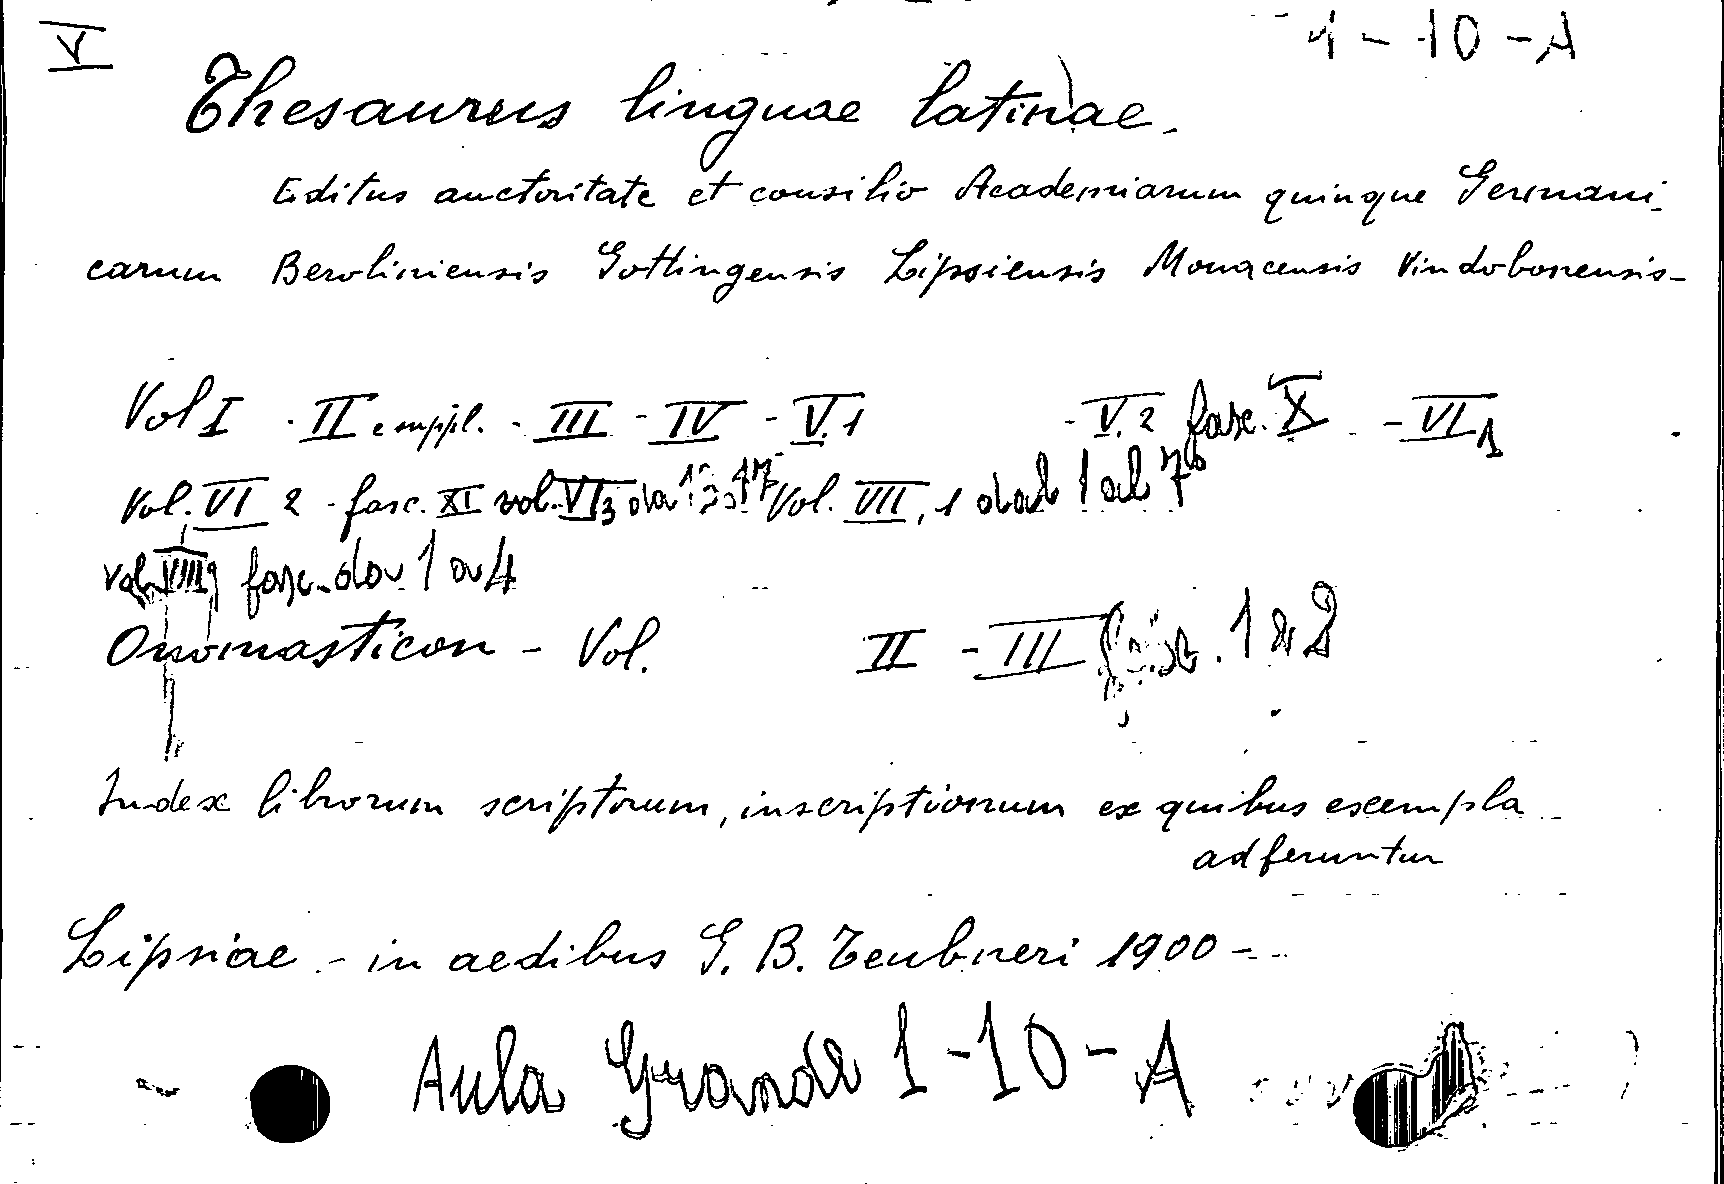 V
1-10-A
Thesaurus linguae latinae.
Editus auctoritate et consilio Academiarum quinque Germani-
carum Berolinensis Gottingensis Lipsiensis Monacensis Vindobonensis-
Vol I - II e suppl. - III - IV - V.1 - V.2 fasc. X - VI 1
Vol. VI 2 - fasc. XI vol. VI 3 da 1 17 Vol. VII, 1 dal 1 al 7
vol. VIII fasc. da 1 a 4
Onomasticon - Vol. II - III fasc. 1 e 2
Index librorum scriptorum, inscriptionum ex quibus exempla
adferuntur
Lipsiae - in aedibus G. B. Teubneri 1900 -
Aula Grande 1-10-A